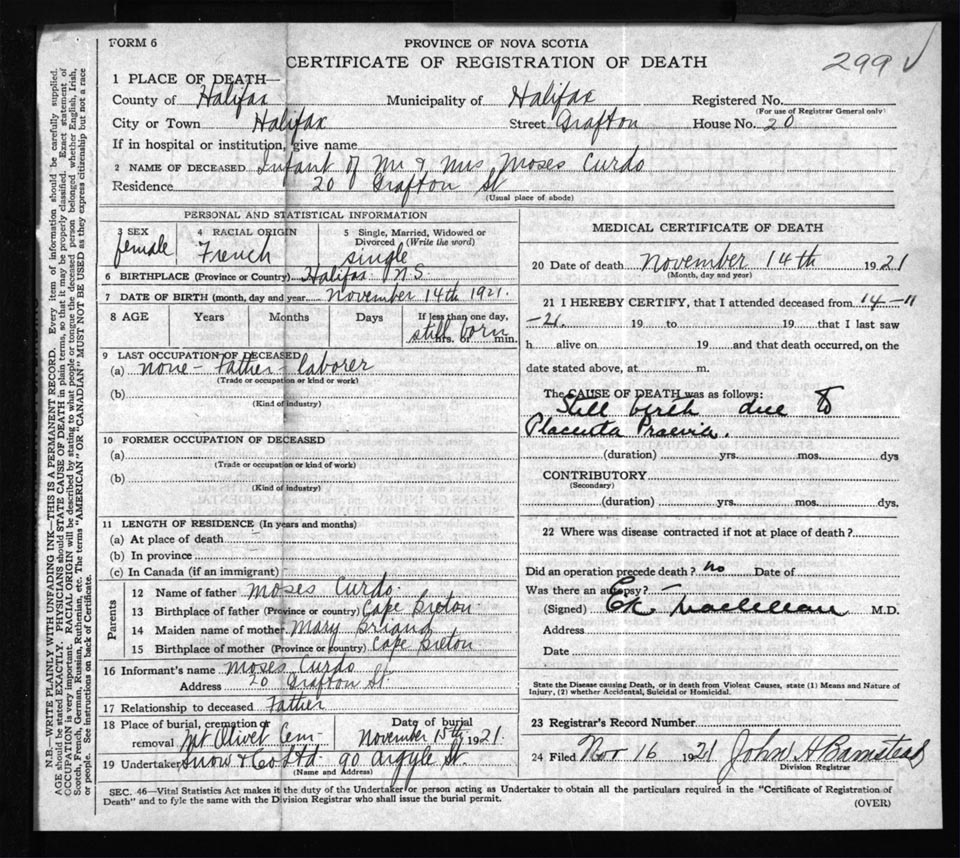 FORM 6
PROVINCE OF NOVA SCOTIA
CERTIFICATE OF REGISTRATION OF DEATH
299 ✓
1 PLACE OF DEATH—
County of Halifax Municipality of Halifax Registered No.
(For use of Registrar General only)
City or Town Halifax Street Grafton House No. 20
If in hospital or institution, give name
2 NAME OF DECEASED Infant of Mr & Mrs Moses Curdo
Residence 20 Grafton St
(Usual place of abode)
PERSONAL AND STATISTICAL INFORMATION
3 SEX female
4 RACIAL ORIGIN French
5 Single, Married, Widowed or Divorced (Write the word) single
6 BIRTHPLACE (Province or Country) Halifax N.S
7 DATE OF BIRTH (month, day and year November 14th 1921.
8 AGE Years Months Days If less than one day, hrs. or min.
still born
9 LAST OCCUPATION OF DECEASED
(a) none - Father - laborer
(Trade or occupation or kind or work)
(b)
(Kind of industry)
10 FORMER OCCUPATION OF DECEASED
(a)
(Trade or occupation or kind of work)
(b)
(Kind of industry)
11 LENGTH OF RESIDENCE (In years and months)
(a) At place of death
(b) In province
(c) In Canada (if an immigrant)
Parents
12 Name of father Moses Curdo.
13 Birthplace of father (Province or country) Cape Breton
14 Maiden name of mother Mary Briand
15 Birthplace of mother (Province or country) Cape Breton
16 Informant's name Moses Curdo
Address 20 Grafton St.
17 Relationship to deceased Father
18 Place of burial, cremation or removal Mt Olivet Cem Date of burial November 15th 1921.
19 Undertaker Snow & Co Ltd. 90 Argyle St.
(Name and Address)
MEDICAL CERTIFICATE OF DEATH
20 Date of death November 14th 1921
(Month, day and year)
21 I HEREBY CERTIFY, that I attended deceased from 14-11
-21. 19 to 19 that I last saw
h alive on 19 and that death occurred, on the
date stated above, at m.
The CAUSE OF DEATH was as follows:
Still birth due to
Placenta Praevia.
(duration) yrs. mos. dys
CONTRIBUTORY
(Secondary)
(duration) yrs. mos. dys.
22 Where was disease contracted if not at place of death?
Did an operation precede death? no Date of
Was there an autopsy?
(Signed) M.D.
Address
Date
State the Disease causing Death, or in death from Violent Causes, state (1) Means and Nature of
Injury, (2) whether Accidental, Suicidal or Homicidal.
23 Registrar's Record Number
24 Filed Nov 16 1921 John A Barnstead
Division Registrar
SEC. 46—Vital Statistics Act makes it the duty of the Undertaker or person acting as Undertaker to obtain all the particulars required in the "Certificate of Registration of
Death" and to fyle the same with the Division Registrar who shall issue the burial permit.
(OVER)
N.B.—WRITE PLAINLY WITH UNFADING INK—THIS IS A PERMANENT RECORD. Every item of information should be carefully supplied.
AGE should be stated EXACTLY. PHYSICIANS should STATE CAUSE OF DEATH in plain terms, so that it may be properly classified. Exact statement of
OCCUPATION is very important. RACIAL ORIGIN will be described by stating to what people or tongue the deceased person belonged, whether English, Irish,
Scotch, French, German, Russian, Ruthenian, etc. The terms "AMERICAN" OR "CANADIAN" MUST NOT BE USED as they express citizenship but not a race
or people. See instructions on back of Certificate.